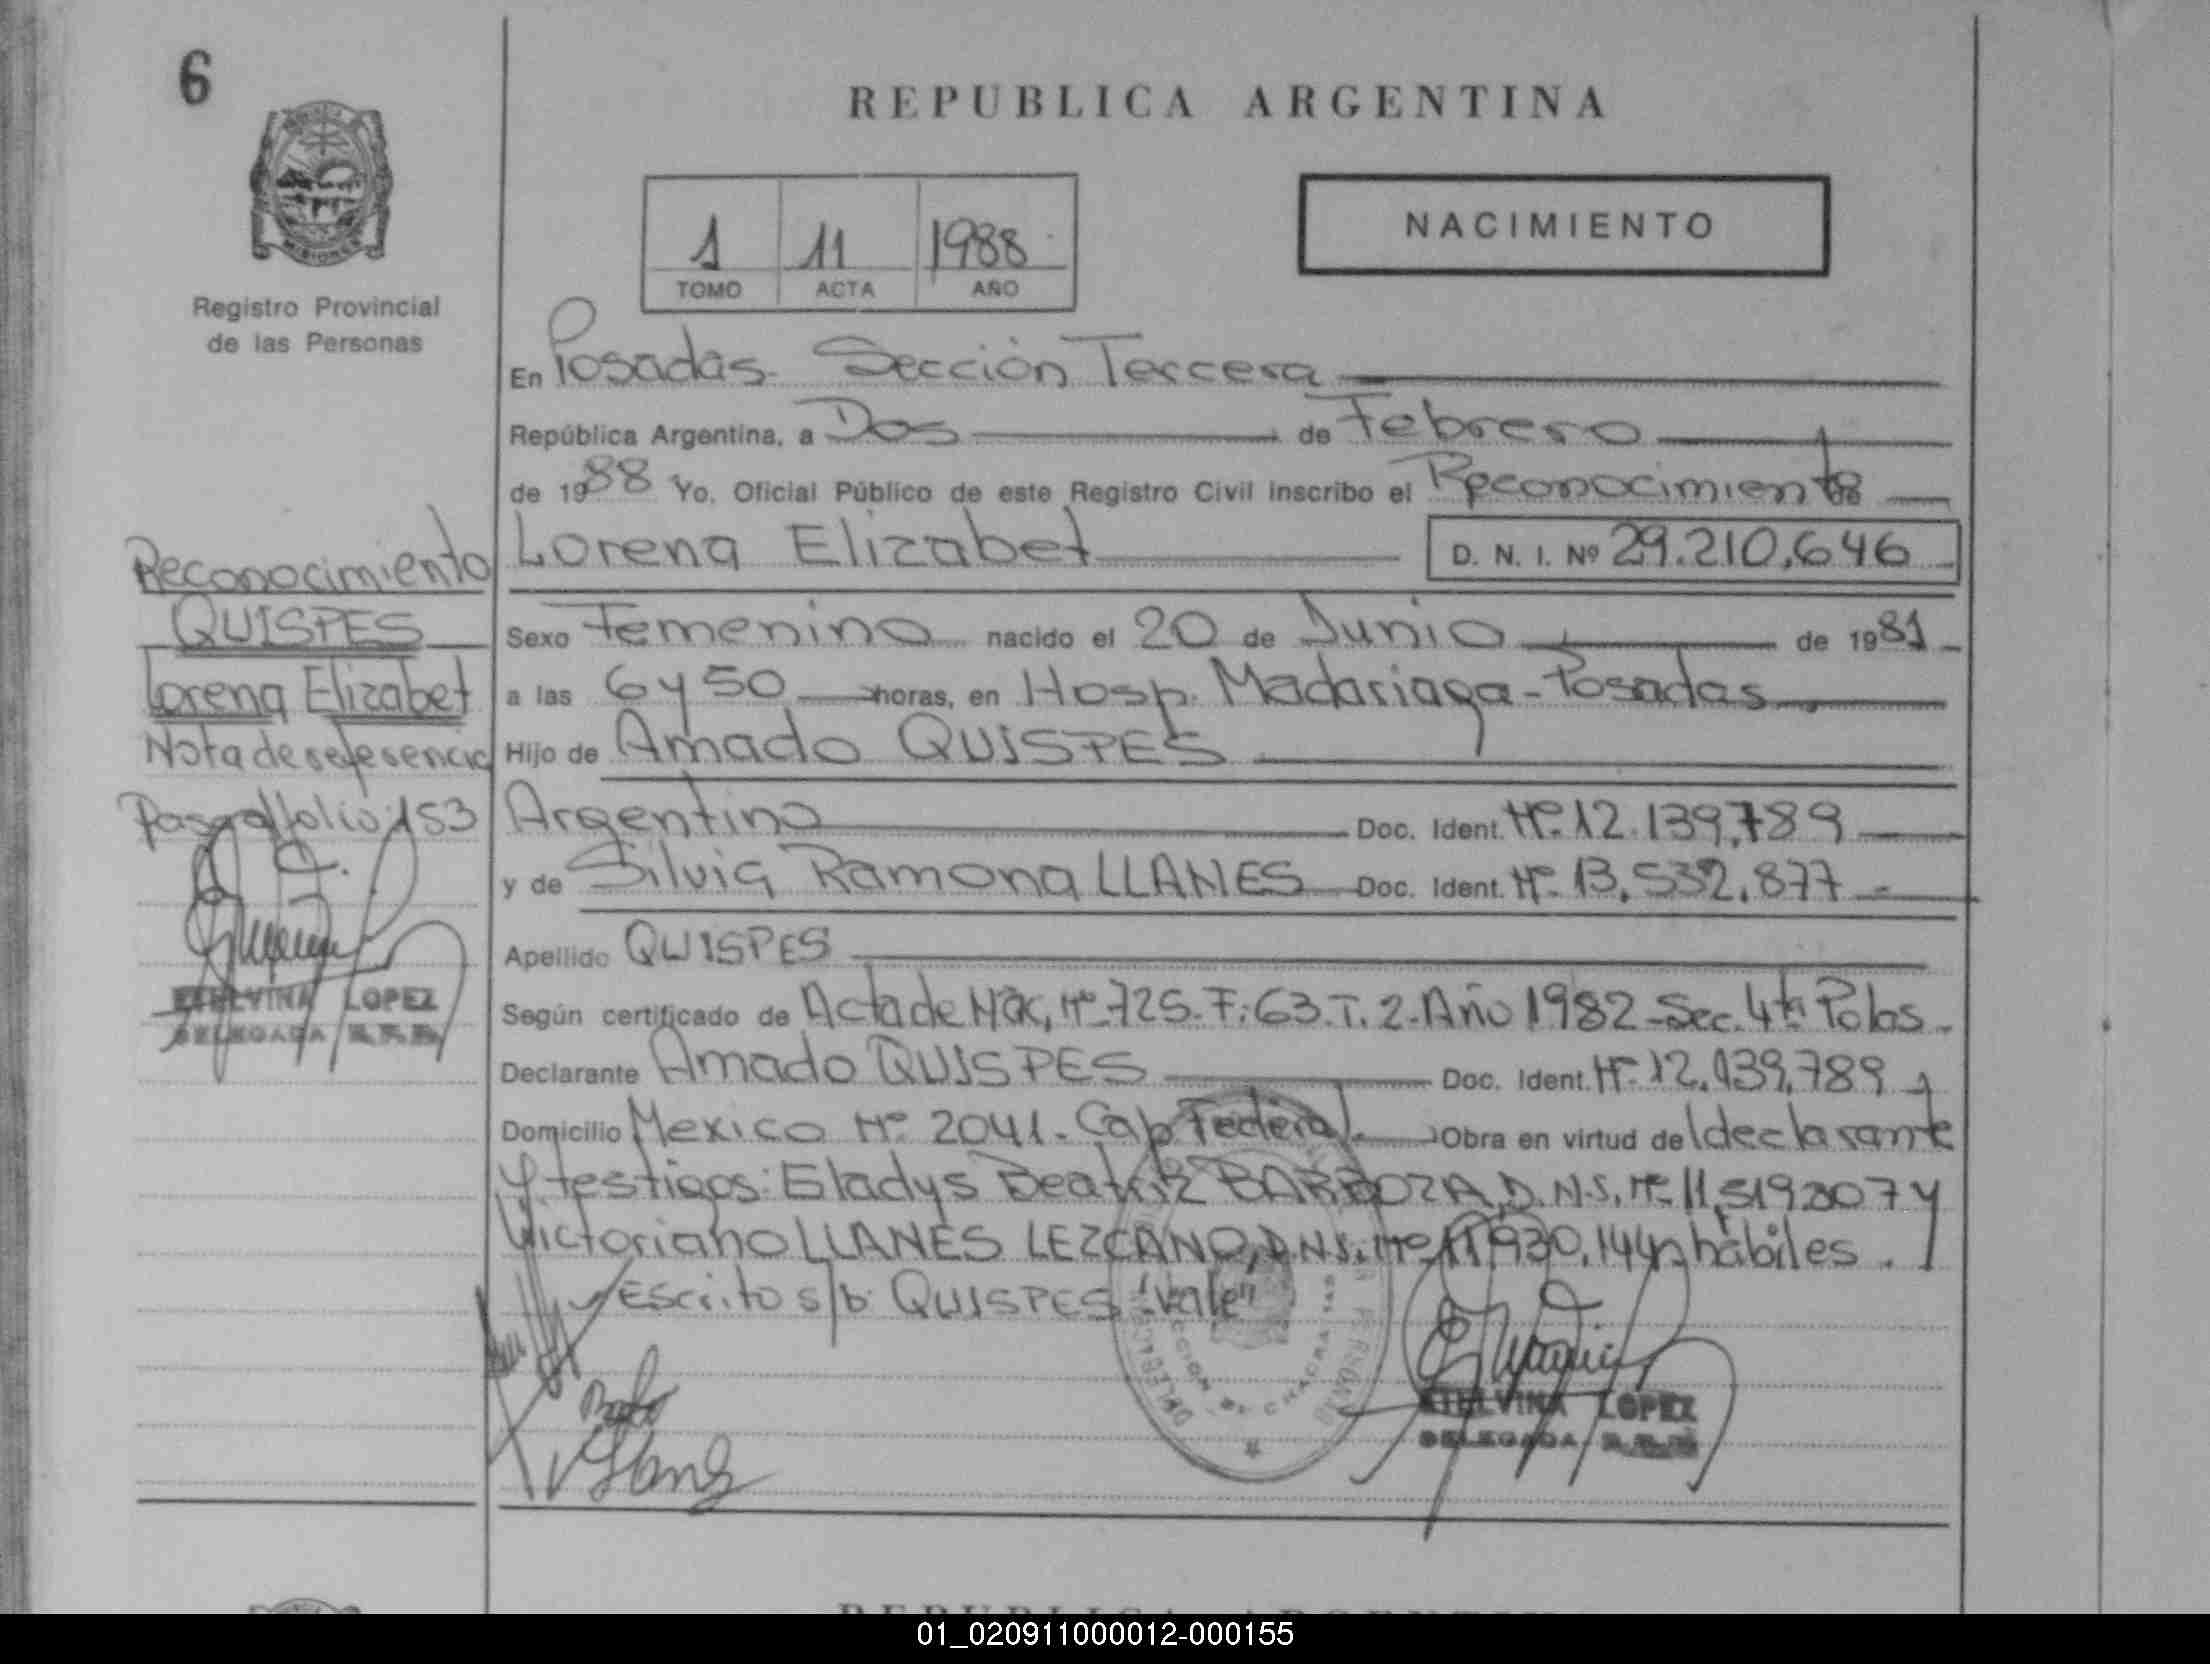 6
REPUBLICA ARGENTINA
MISIONES
Registro Provincial
de las Personas
1 11 1988
TOMO ACTA AÑO
NACIMIENTO
En Posadas. Sección Tercera
República Argentina, a Dos de Febrero
de 1988 Yo, Oficial Público de este Registro Civil inscribo el Reconocimiento
Lorena Elizabet D. N. I. Nº 29.210,646
Sexo Femenino nacido el 20 de Junio de 1981
a las 6 y 50 horas, en Hosp. Madariaga - Posadas
Hijo de Amado QUISPES
Argentino Doc. Ident. Nº 12.139,789
y de Silvia Ramona LLANES Doc. Ident. Nº 13,532,877
Apellido QUISPES
Según certificado de Acta de Nac, Nº 725. F: 63. T. 2. Año 1982 - Sec. 4ta
Declarante Amado QUISPES Doc. Ident. Nº 12,139,789
Domicilio Mexico Nº 2041. Cap Federal. Obra en virtud del declarante
y testigos: Gladys Beatriz BARBOZA, D.N.I. Nº 11,519
Victoriano LLANES LEZCANO, D.N.I. Nº 930,144 hábiles.
Escrito s/b: QUISPES "Vale"
ETELVINA LOPEZ
DELEGADA
Reconocimiento
QUISPES
Lorena Elizabet
Nota de referencia
Pasa al folio 153
ETELVINA LOPEZ
DELEGADA
CHACRA
01_020911000012-000155